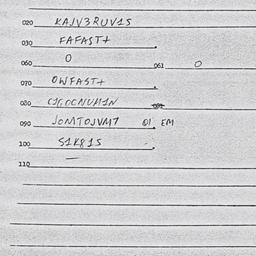 020 KAJV3RUV1S
030 FAFAST+
060 O 061 O
070 OWFAST+
080
090 JOMTOJVM7 01 EM
100 S1K81S
110 —